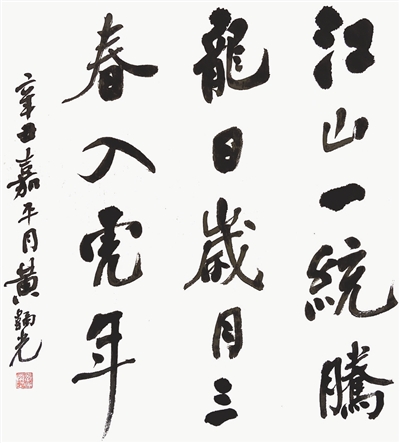 江山一統騰
龍日歲月三
春入虎年
辛丑嘉平月黃光